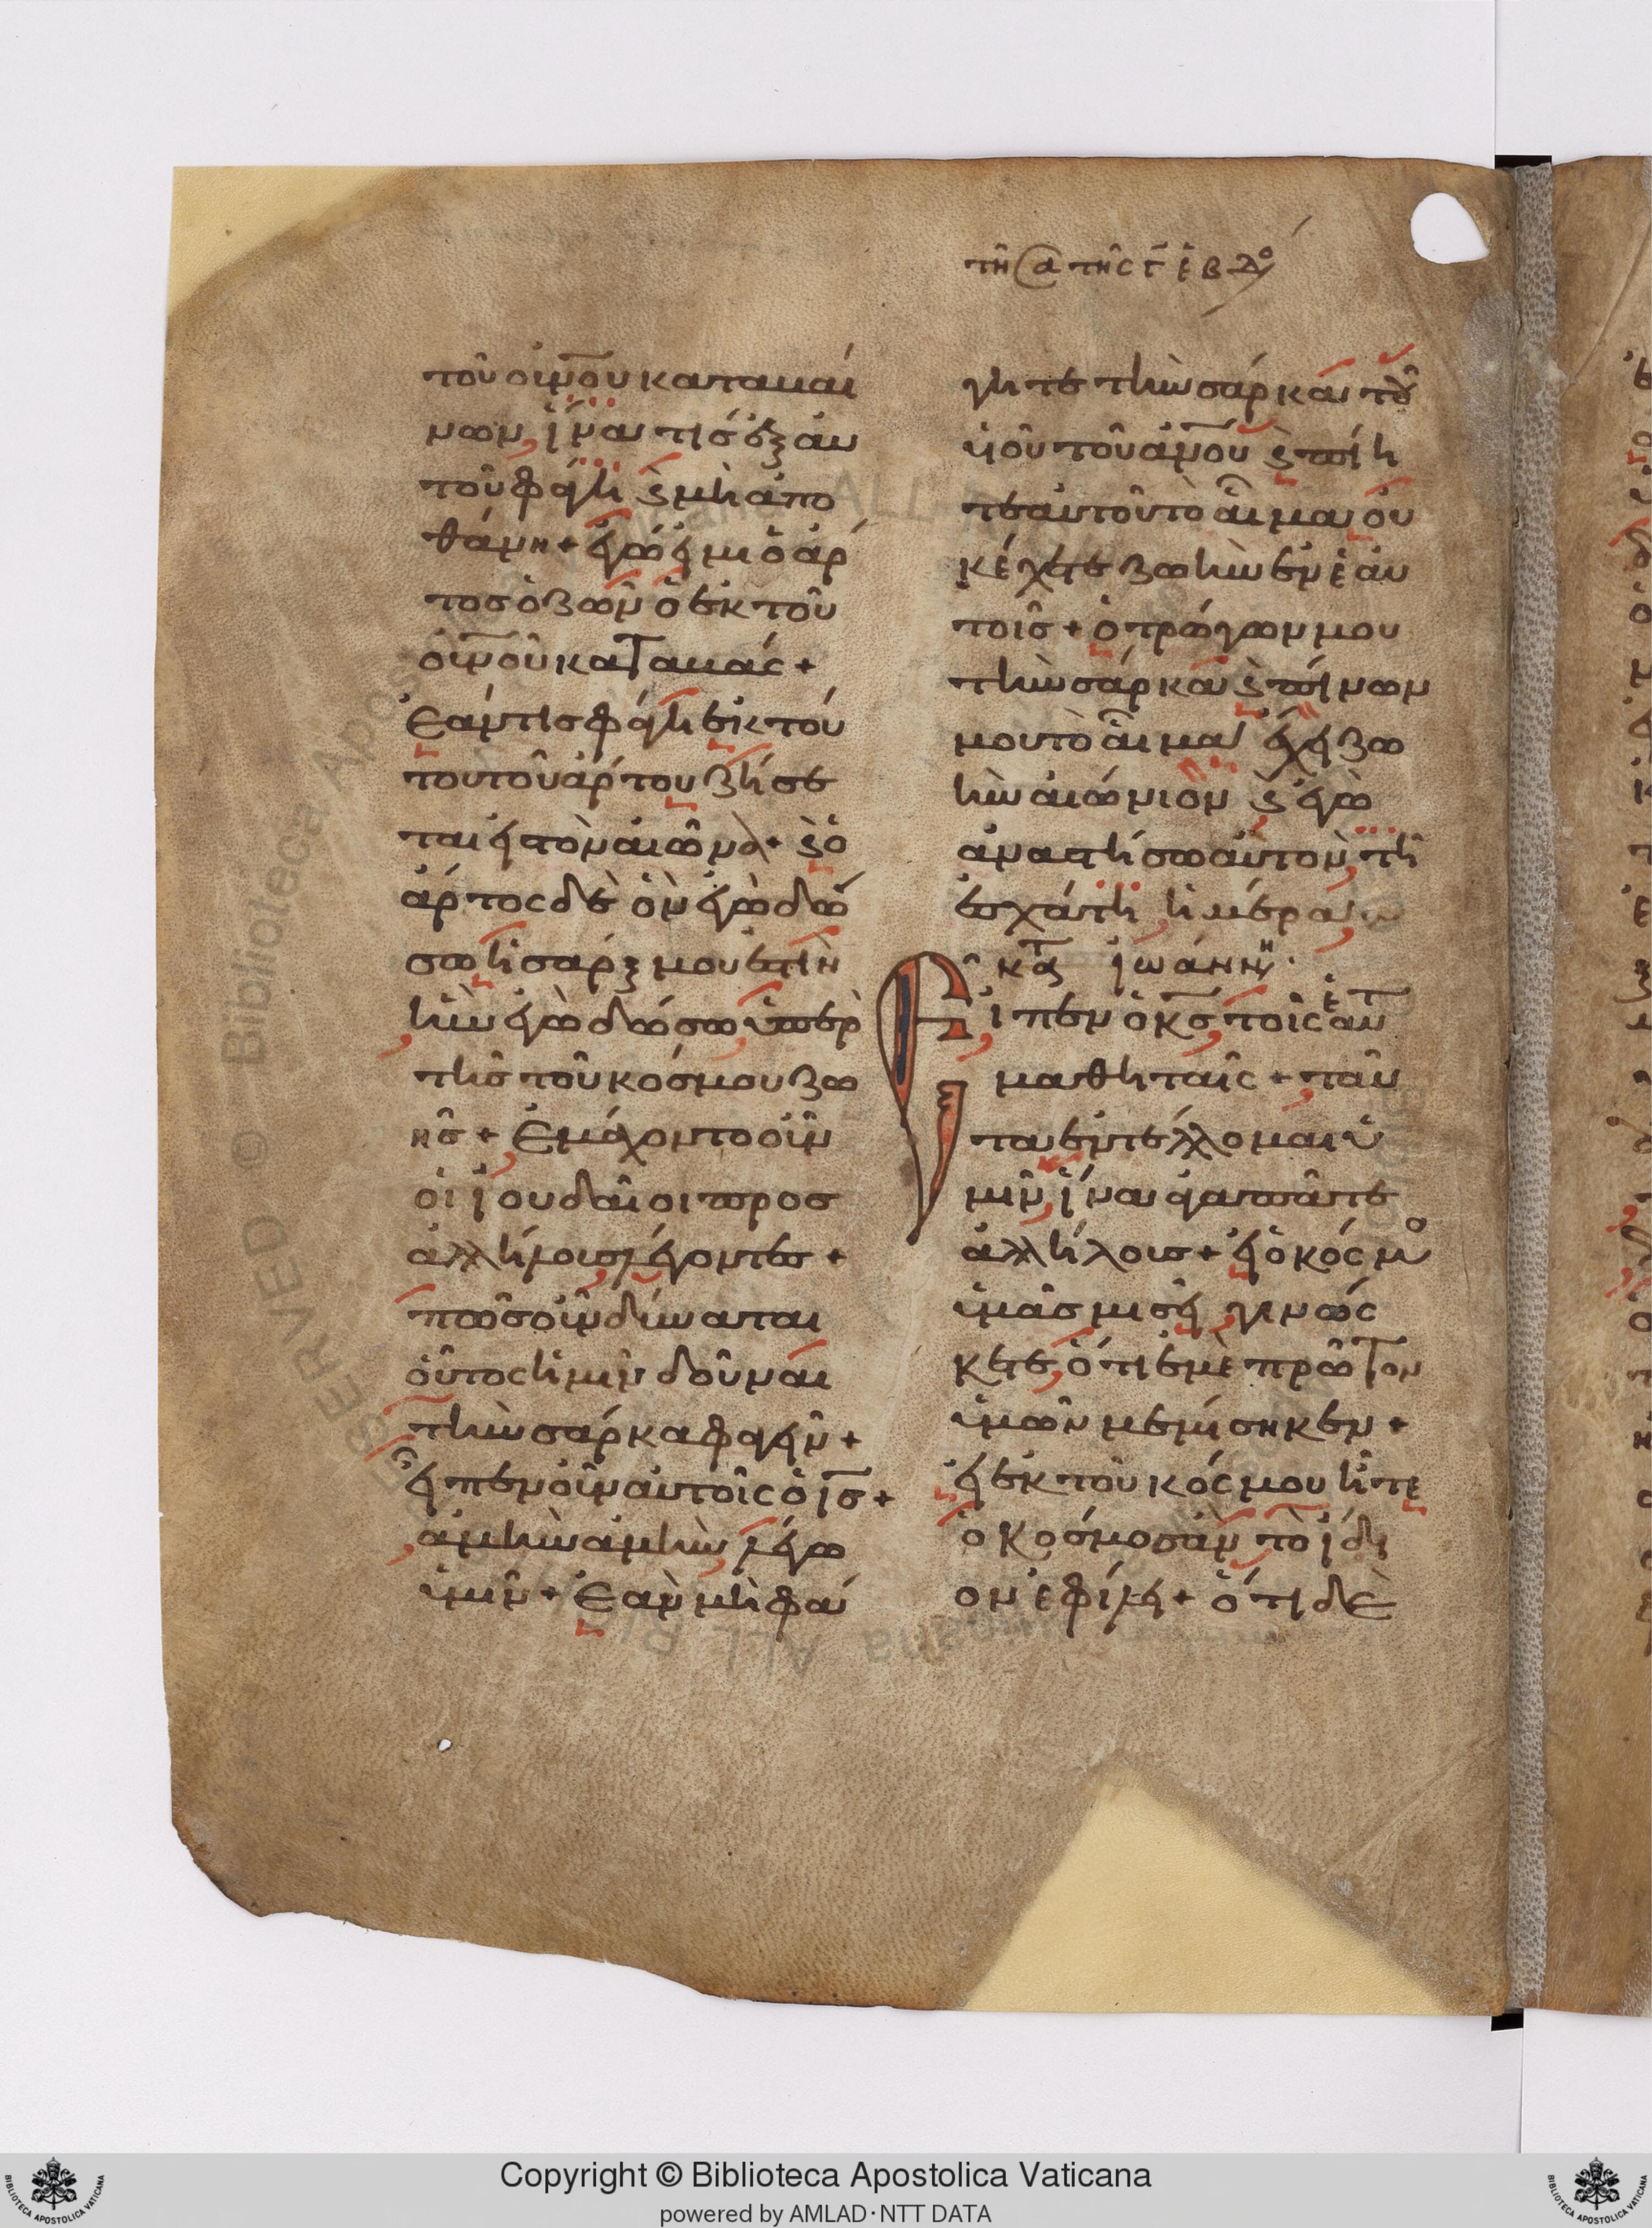 τῆ α τῆς γ ἑβδο
τοῦ οὐνου καταβαί
νων, ἵνα τις ἐξ αυ
τοῦ φάγη ϗ μὴ ἀπο
θάνη + ἐγώ εἰμι ὁ ἄρ
τοσ ὁ ζῶν ὁ ἐκ τοῦ
οὐνοῦ καταβάς +
Ἐάν τισ φάγη ἐκ τού
του τοῦ ἄρτου ζήσε
ται εἰ τὸν αἰῶνα + ϗ ὁ
ἄρτος δὲ ὃν ἐγὼ δώ
σω ἡ σάρξ μου ἐστὶν
ἣν ἐγὼ δώσω ὑπὲρ
τῆσ τοῦ κόσμου ζω
ῆσ + Ἐμάχοντο οὖν
οἱ ἰουδαῖοι προσ
ἀλλήλουσ λέγοντεσ +
πῶσ οὖν δύναται
οὗτος ἡμῖν δοῦναι
τὴν σάρκα φαγεῖν +
εἶπεν οὖν αὐτοῖς ὁ ισ +
ἀμὴν ἀμὴν λέγω
ὑμῖν + Ἐὰν μὴ φά
γητε τὴν σάρκα τοῦ
υἱοῦ τοῦ ἀνου ϗ πίη
τε αὐτοῦ τὸ αἷμα οὐ
κ ἔχετε ζωὴν ἐν ἑαυ
τοῖσ + ὁ τρώγων μου
τὴν σάρκα ϗ πίνων
μου τὸ αἷμα ἔχει ζω
ὴν αἰώνιον ϗ ἐγὼ
ἀναστήσω αὐτὸν τῆ
ἐσχάτη ἡμέρα
κατ ἰωάννην
Εἶπεν ὁ κσ τοῖς ἑαυτ
μαθηταῖς + ταῦ
τα ἐντέλλομαι ὑ
μῖν ἵνα ἀγαπᾶτε
ἀλλήλουσ + εἰ ὁ κόσμο
ὑμᾶσ μισεῖ γινώς
κετε ὅτι ἐμὲ πρῶτον
ὑμῶν μεμίσηκεν +
εἰ ἐκ τοῦ κόσμου ἦτε
ὁ κοσμοσ ἂν τὸ ἴδι
ον ἐφίλει + ὅτι δὲ
Copyright © Biblioteca Apostolica Vaticana
powered by AMLAD·NTT DATA